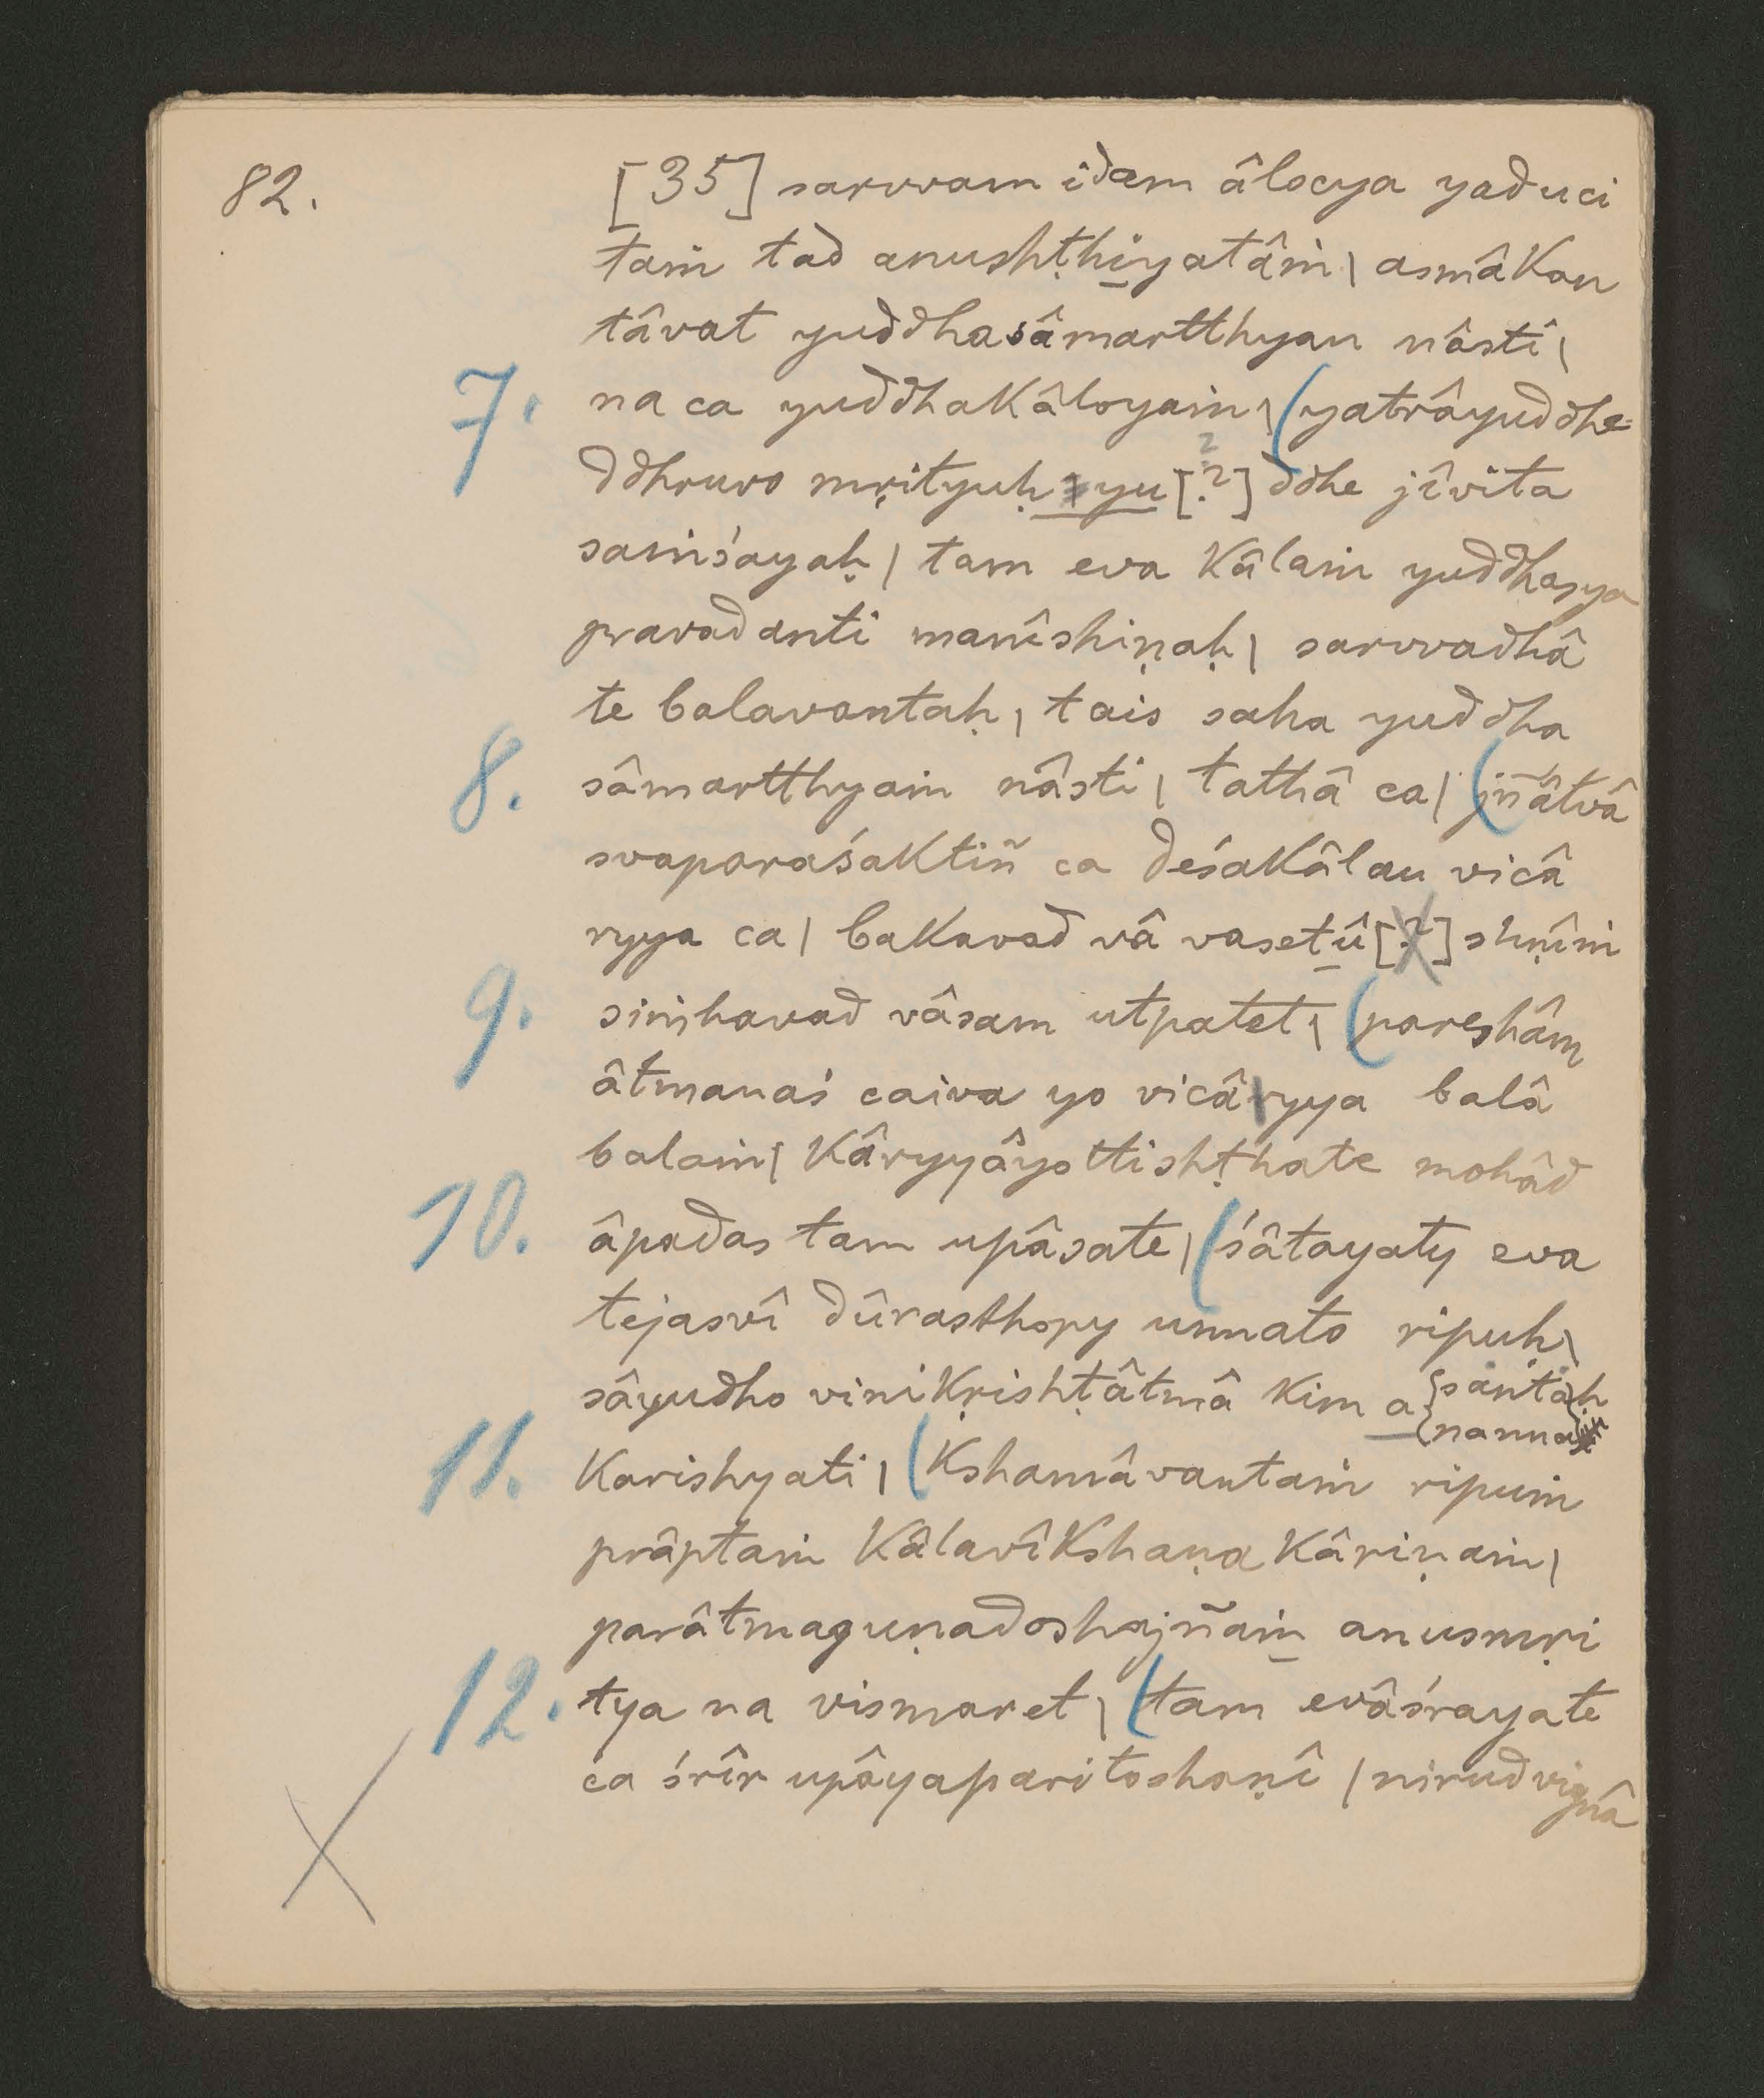 82.
[35] sarvvam idam âlocya yad uci
taṁ tad anushṭhiyatâṁ | asmâkan
tâvat yuddhasâmartthyan nâsti |
7. na ca yuddhakâloyaṁ | (yatrâyuddhe=
ddhruvo mṛityuḥ yu [?] ddhe jîvita
saṁśayaḥ | tam eva kâlaṁ yuddhasya
pravadanti manîshiṇaḥ | sarvvadhâ
te balavantaḥ | tais saha yuddha
8. sâmartthyaṁ nâsti | tathâ ca | (jñâtvâ
svaparaśaktiñ ca deśakâlau vicâ
ryya ca | bakavad vâ vasetû [?] shṇîṁ
9. siṁhavad vâsam utpatet | (pareshâm
âtmanaś caiva yo vicâryya balâ
balaṁ | kâryyâyottishṭhate mohâd
10. âpadas tam upâsate | (śâtayaty eva
tejasvî dûrasthopy unnato ripuḥ |
sâyudho vinikṛishṭâtmâ kim a {sântaḥ
{nannaṁ
11. karishyati | (kshamâvantaṁ ripuṁ
prâptaṁ kâlavîkshaṇa kâriṇaṁ |
parâtmaguṇadoshajñaṁ anusmṛi
12. tya na vismaret | (tam evâśrayate
ca śrîr upâyaparitoshaṇî | nirudvignâ